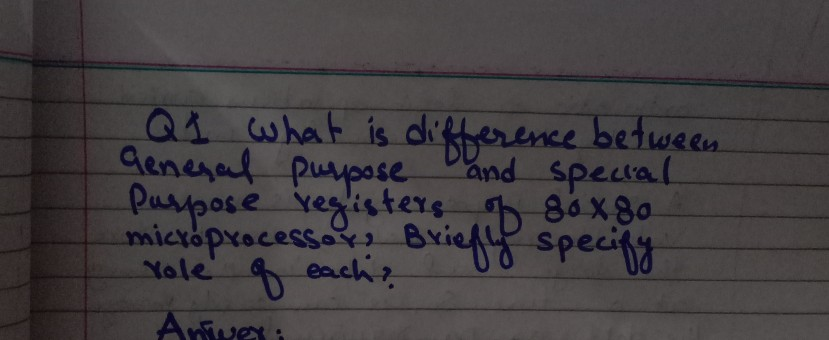 Q1 what is difference between
General purpose and special
Purpose registers of 80X80
microprocessor, Briefly specify
role of each?
Answer: